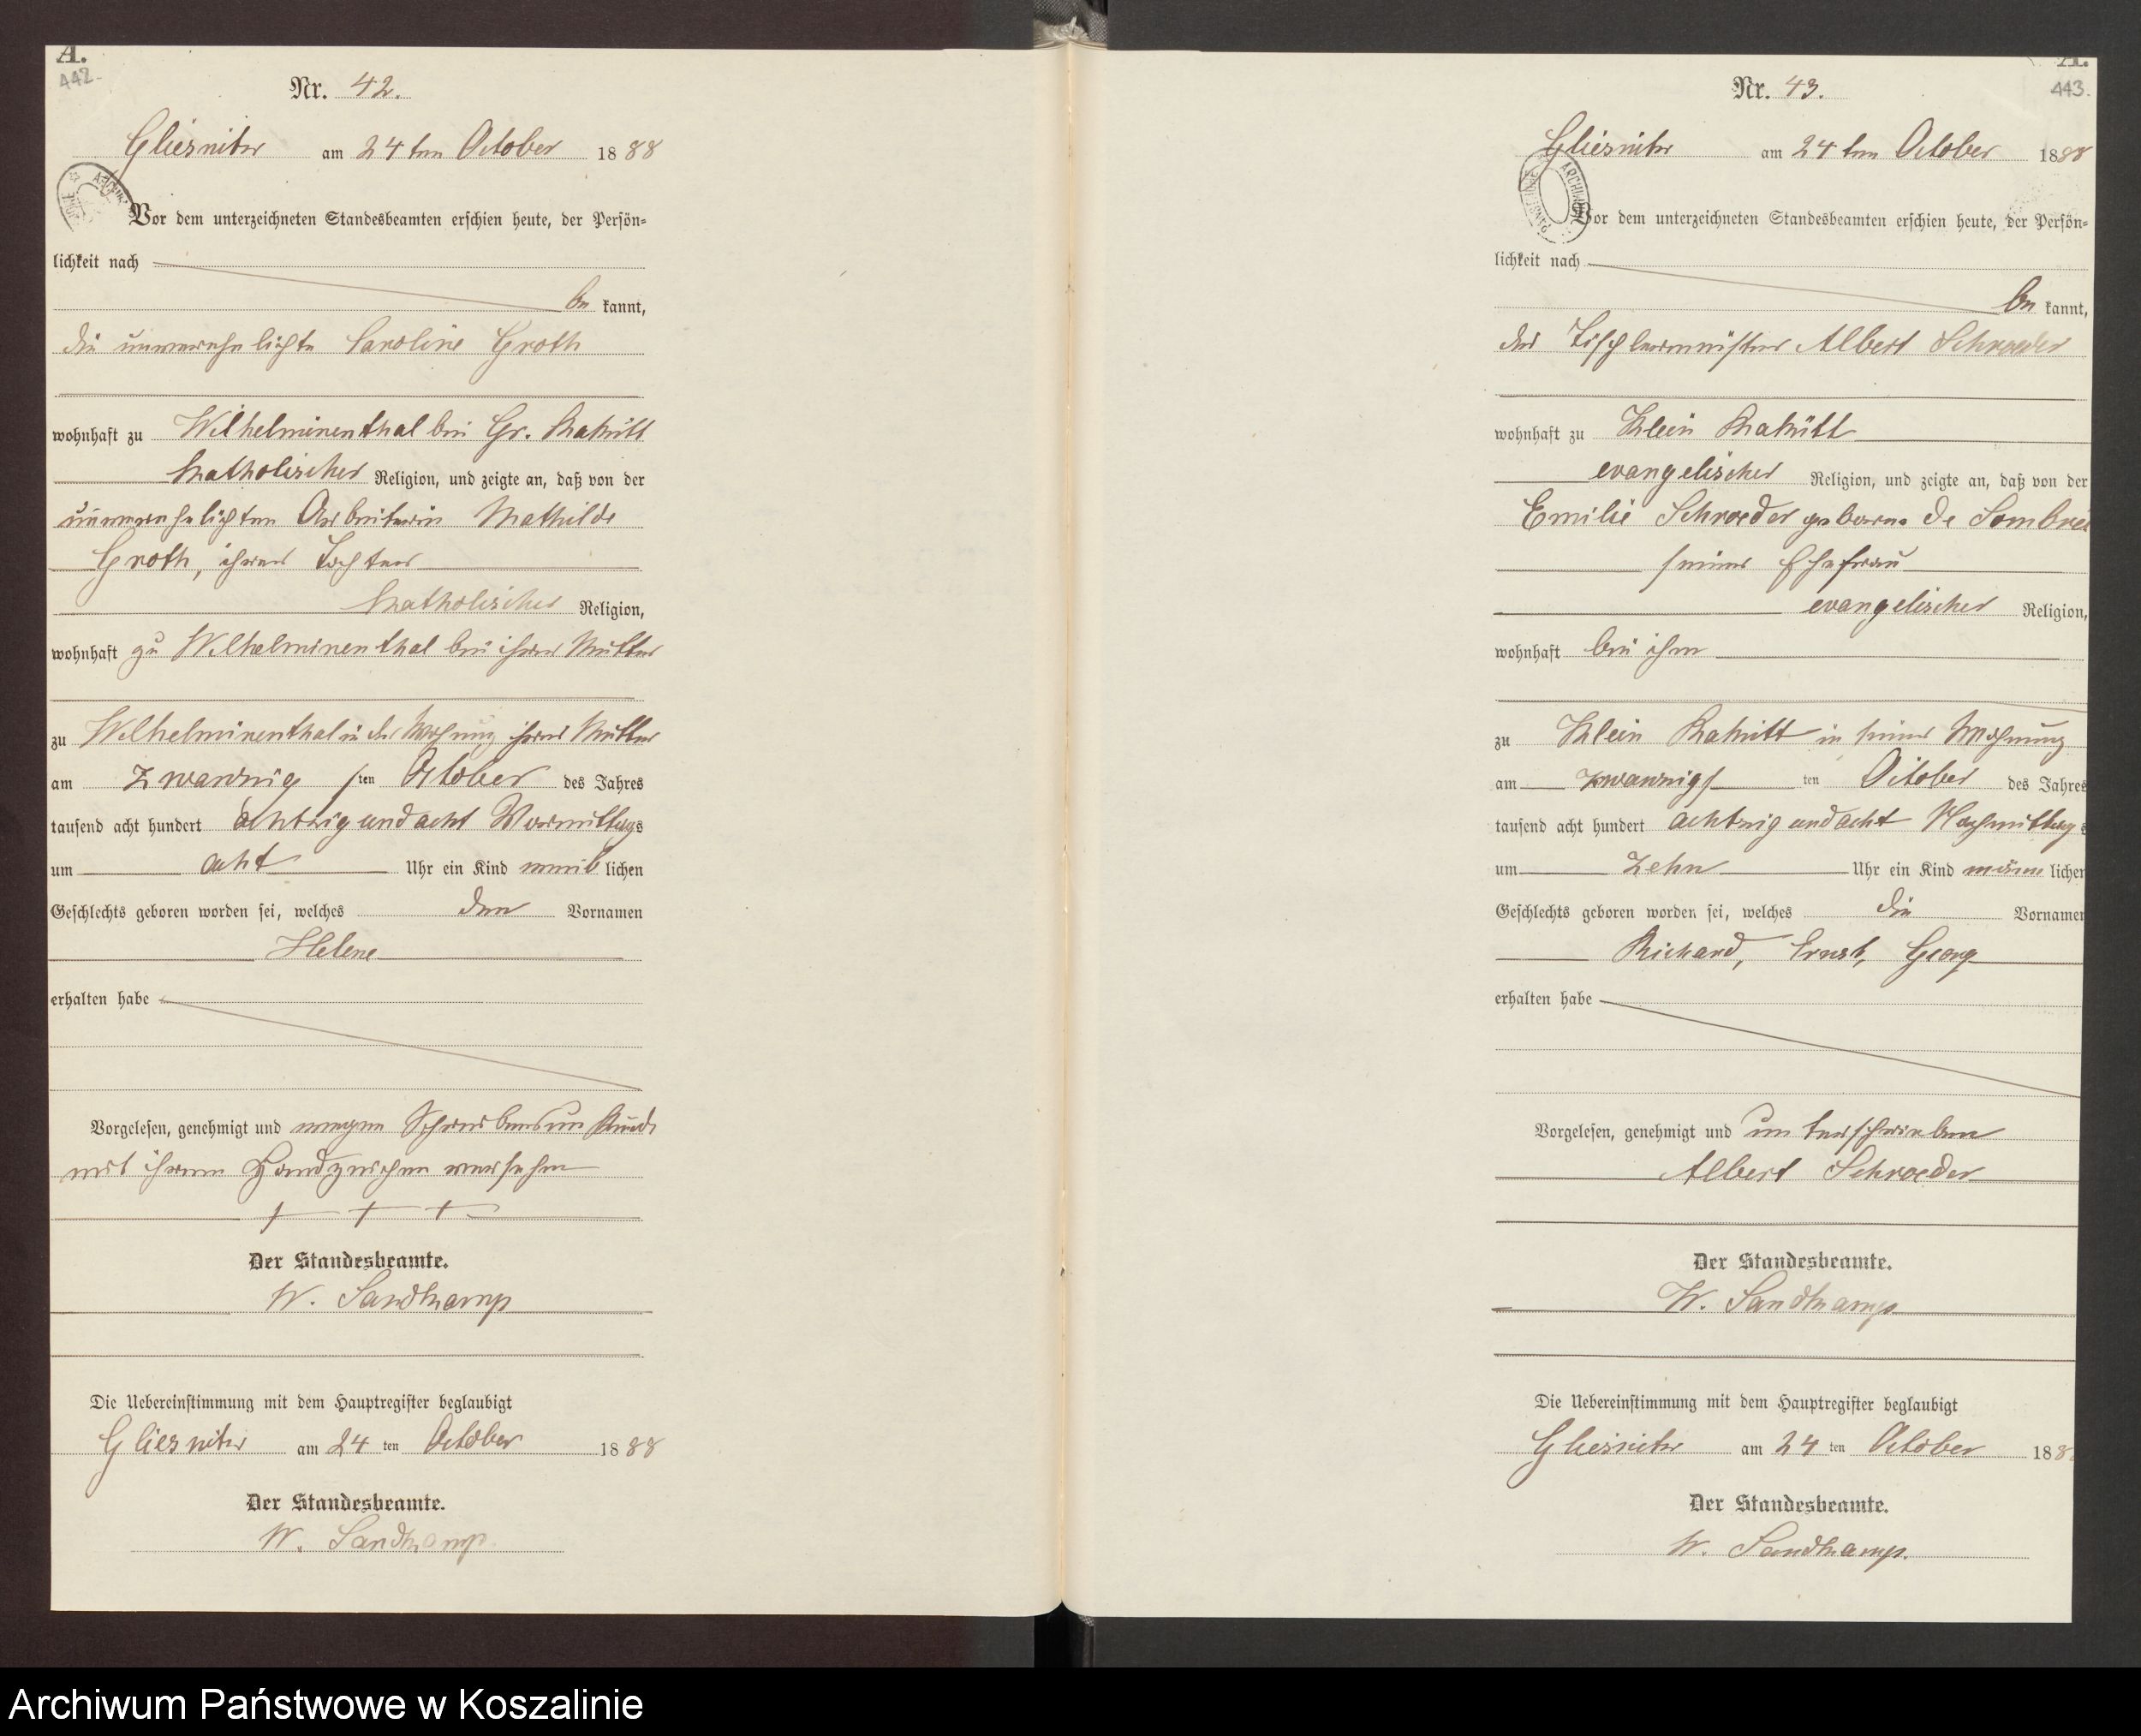 A.
442.
Nr. 42.
Gliesnitz am 24ten October 1888
Vor dem unterzeichneten Standesbeamten erschien heute, der Persön=
lichkeit nach
be kannt,
die unverehelichte Caroline Groth
wohnhaft zu Wilhelminenthal bei Gr. Rakitt
katholischer Religion, und zeigte an, daß von der
unverehelichten Arbeiterin Mathilde
Groth, ihrer Tochter
katholischer Religion,
wohnhaft zu Wilhelminenthal bei ihrer Mutter
zu Wilhelminenthal in der Wohnung ihrer Mutter
am zwanzig sten October des Jahres
tausend acht hundert achtzig und acht Vormittags
um acht Uhr ein Kind weib lichen
Geschlechts geboren worden sei, welches den Vornamen
Helene
erhalten habe
Vorgelesen, genehmigt und wegen Schreibensunkunde
mit ihrem Handzeichen versehen
+ + +
Der Standesbeamte.
W. Sandkamp
Die Uebereinstimmung mit dem Hauptregister beglaubigt
Gliesnitz am 24 ten October 1888
Der Standesbeamte.
W. Sandkamp.
A.
443.
Nr. 43.
Gliesnitz am 24ten October 1888
Vor dem unterzeichneten Standesbeamten erschien heute, der Persön=
lichkeit nach
be kannt,
der Tischlermeister Albert Schroeder
wohnhaft zu Klein Rakitt
evangelischer Religion, und zeigte an, daß von der
Emilie Schroeder geborne de Sombre
seiner Ehefrau
evangelischer Religion,
wohnhaft bei ihm
zu Klein Rakitt in seiner Wohnung
am zwanzigs ten October des Jahres
tausend acht hundert achtzig und acht Nachmittags
um zehn Uhr ein Kind männ lichen
Geschlechts geboren worden sei, welches die Vornamen
Richard, Ernst, Georg
erhalten habe
Vorgelesen, genehmigt und unterschrieben
Albert Schroeder
Der Standesbeamte.
W. Sandkamp
Die Uebereinstimmung mit dem Hauptregister beglaubigt
Gliesnitz am 24 ten October 188
Der Standesbeamte.
W. Sandkamp.
Archiwum Państwowe w Koszalinie